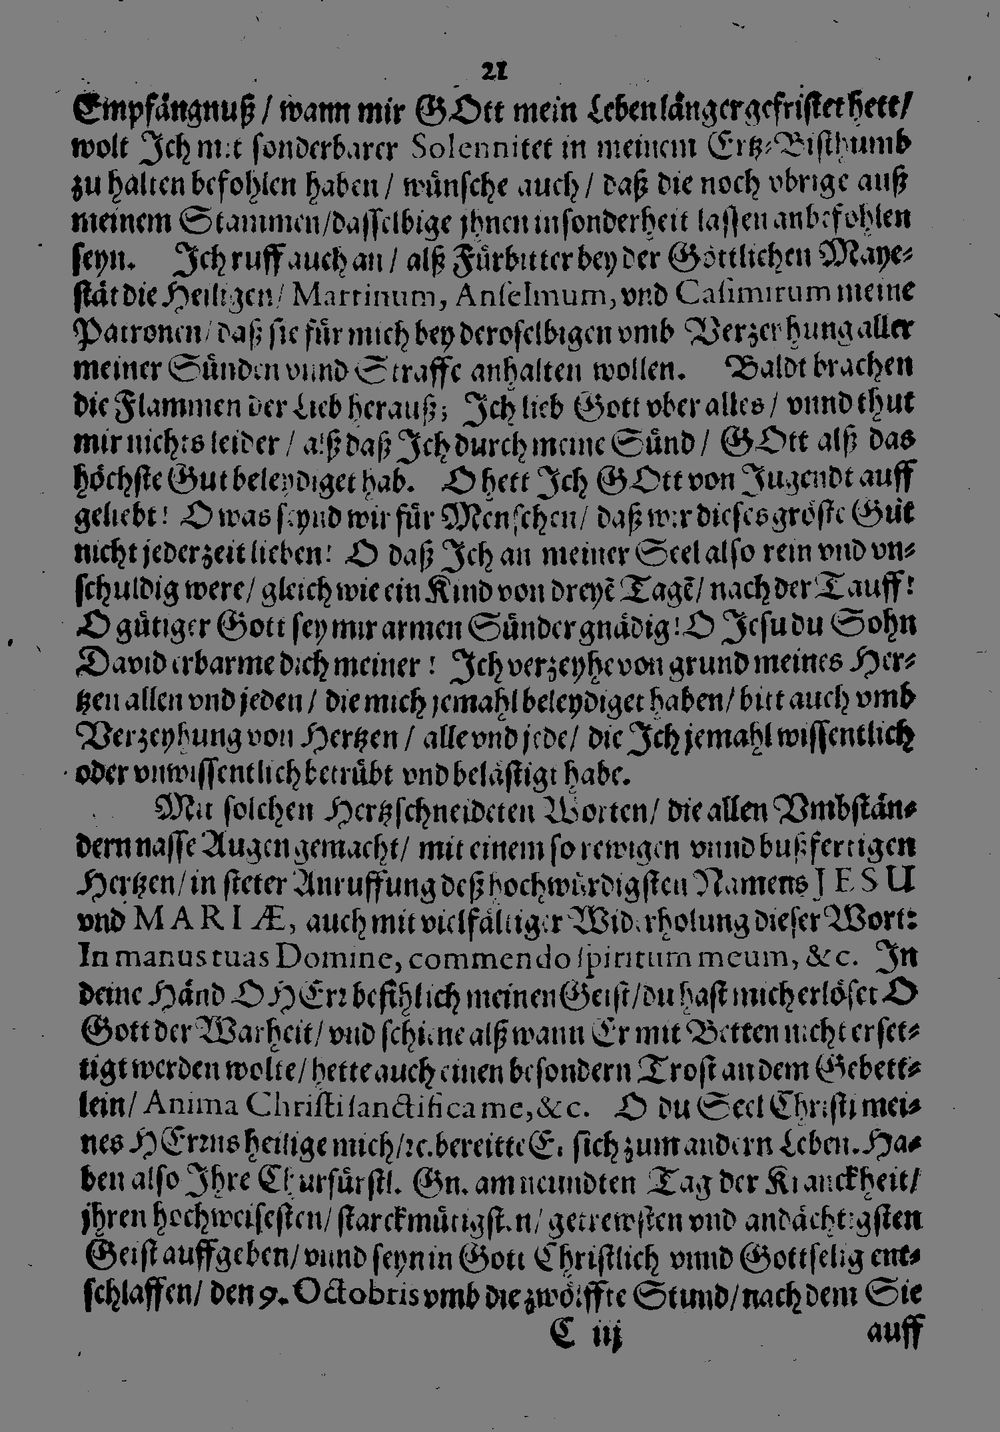 21
Empfängnuß / wann mir GOtt mein Leben länger gefristet hett /
wolt Ich mit sonderbarer Solennitet in meinem Ertz-Bisthumb
zu halten befohlen haben / wünsche auch / daß die noch vbrige auß
meinem Stammen / dasselbige jhnen insonderheit lassen anbefohlen
seyn. Ich ruff auch an / alß Fürbitter bey der Göttlichen Maye-
stät die Heiligen / Martinum, Anselmum, vnd Casimirum meine
Patronen / daß sie für mich bey deroselbigen vmb Verzeyhung aller
meiner Sünden vnnd Straffe anhalten wollen. Baldt brachen
die Flammen der Lieb herauß; Ich lieb Gott vber alles / vnnd thut
mir nichts leider / alß daß Ich durch meine Sünd / GOtt alß das
höchste Gut beleydiget hab. O hett Ich GOtt von Jugendt auff
geliebt! O was seynd wir für Menschen / daß wir dieses gröste Gut
nicht jederzeit lieben! O daß Ich an meiner Seel also rein vnd vn-
schuldig were / gleich wie ein Kind von dreyē Tagē / nach der Tauff!
O gütiger Gott sey mir armen Sünder gnädig! O Jesu du Sohn
David erbarme dich meiner! Ich verzeyhe von grund meines Her-
tzen allen vnd jeden / die mich jemahl beleydiget haben / bitt auch vmb
Verzeyhung von Hertzen / alle vnd jede / die Ich jemahl wissentlich
oder vnwissentlich betrübt vnd belästigt habe.
Mit solchen Hertzschneideten Worten / die allen Vmbstän-
dern nasse Augen gemacht / mit einem so rewigen vnnd bußfertigen
Hertzen / in steter Anruffung deß hochwürdigsten Namens JESU
vnd MARIÆ, auch mit vielfältiger Widerholung dieser Wort:
In manus tuas Domine, commendo spiritum meum, &c. In
deine Händ O HErr befihl ich meinen Geist / du hast mich erlöset O
Gott der Warheit / vnd schiene alß wann Er mit Betten nicht erset-
tigt werden wolte / hette auch einen besondern Trost an dem Gebett-
lein / Anima Christi sanctifica me, &c. O du Seel Christi mei-
nes HErrns heilige mich / ꝛc. bereitte Er sich zum andern Leben. Ha-
ben also Ihre Churfürstl. Gn. am neundten Tag der Kranckheit /
jhren hochweisesten / starckmütigsten / getrewsten vnd andächtigsten
Geist auffgeben / vnnd seyn in Gott Christlich vnnd Gottselig ent-
schlaffen / den 9. Octobris vmb die zwölffte Stund / nach dem Sie
C iij auff